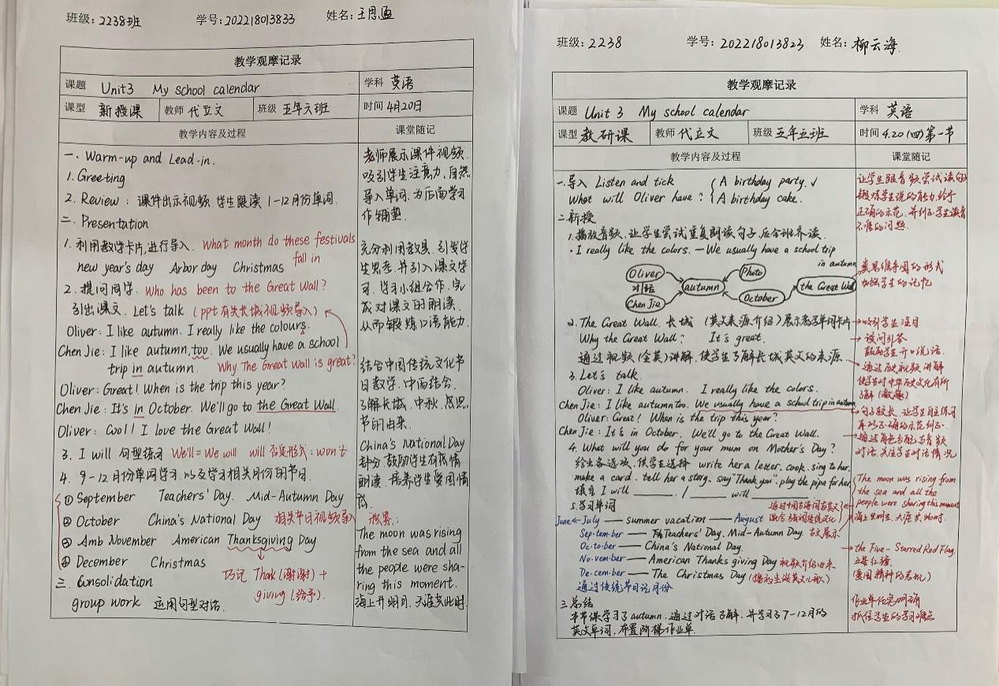 班级：2238班 学号：202218013833 姓名：王思
教学观摩记录
课题 Unit3 My school calendar 学科 英语
课型 新授课 教师 代立文 班级 五年六班 时间 4月20日
教学内容及过程 课堂随记
一. Warm-up and Lead-in.
1. Greeting
2. Review：课件出示视频 学生跟读 1-12月份单词.
二. Presentation
1. 利用教学卡片,进行导入. What month do these festivals
fall in
new year's day Arbor day Christmas
2. 提问同学. Who has been to the Great Wall?
引出课文. Let's talk (ppt有关长城视频导入)
Oliver: I like autumn. I really like the colours.
Chen Jie: I like autumn, too. We usually have a school
trip in autumn. Why The Great wall is great?
Oliver: Great! When is the trip this year?
Chen Jie: It's in October. We'll go to the Great Wall.
Oliver: Cool! I love the Great Wall!
3. I will 句型练习 We'll = We will 否定形式：won't
4. 9-12月份单词学习 以及学习相关月份的节日
① September Teachers' Day. Mid-Autumn Day
② October China's National Day 相关节日视频导入
③ Amb November American Thanksgiving Day
④ December Christmas
巧记 Thank (谢谢) +
giving (给予).
三. Consolidation
group work 运用句型对话.
老师展示课件视频.
吸引学生注意力,自然
导入单词.为后面学习
作铺垫.
充分利用教具.引发学
生思考.并引入课文学
习.学习小组合作.完
成对课文的朗读.
从而锻炼口语能力.
结合中国传统文化节
日教学.中西结合.
了解长城.中秋.感恩
节的由来.
China's National Day
部分 鼓励学生有感情
朗读.培养学生爱国情
The moon was rising
from the sea and all
the people were sha-
ring this moment.
海上升明月.天涯共此时.
班级：2238 学号：202218013823 姓名：柳云海
教学观摩记录
课题 Unit 3 My school calendar 学科 英语
课型 教研课 教师 代立文 班级 五年五班 时间 4.20(四)第一节
教学内容及过程 课堂随记
一.导入 Listen and tick { A birthday party. ✓
What will Oliver have? { A birthday cake.
二.新授
1.播放音频.让学生尝试重复朗读句子.后合班齐读.
· I really like the colors. — We usually have a school trip
in autumn
Oliver
对话
Chen Jie
autumn
Photo
October
the Great Wall
2. The Great Wall 长城 (英文来源介绍) 展示患学单词卡片
Why the Great Wall? It's great.
通过视频(全英)讲解.使学生了解长城英文的来源.
3. Let's talk
Oliver: I like autumn. I really like the colors.
Chen Jie: I like autumn too. We usually have a school trip in autumn
Oliver: Great! When is the trip this year?
Chen Jie: It's in October. We'll go to the Great Wall.
4. What will you do for your mum on Mother's Day?
给出备选项.使学生选择 write her a letter. cook. sing to her.
make a card. tell her a story. say "Thank you". play the pipa for her
填空 I will ____ . / ____ will ____
5.学习单词
June & July — summer vacation — August
Sep·tem·ber — Teachers' Day. Mid-Autumn Day.
Oc·to·ber — China's National Day.
No·vem·ber — American Thanks giving Day 视频介绍由来
De·cem·ber — The Christmas Day
通过传统节日记月份
三.总结
本节课学习了autumn.通过对话了解.并学习了7-12月的
英文单词.布置阶梯作业单.
让学生跟音频尝试读句子
思维导图的形式
加强学生的记忆
吸引学生注目
设问引答
鼓励学生开口说话.
通过视频讲解
The moon was rising from
the sea and all the
people were sharing this moment
海上升明月.天涯共此时.
the Five-Starred Red Flag.
五星红旗